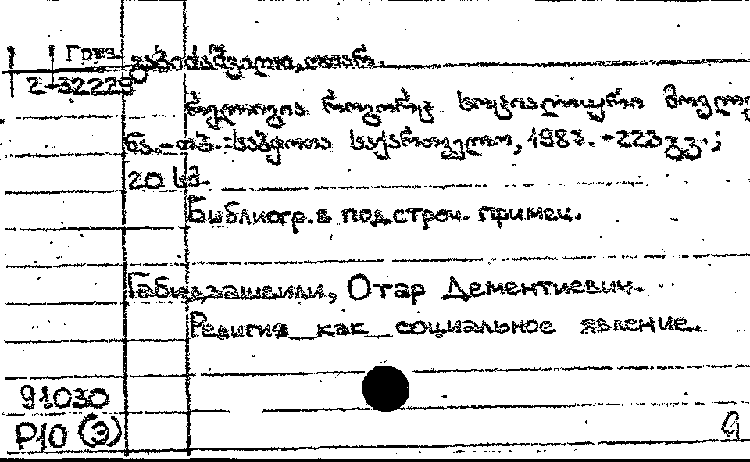 Груз.
2-32229 გაბიძაშვილი, ოთარ.
რელიგია როგორც სოციალური მოვლე
ნა.–თბ.:საბჭოთა საქართველო, 1983.-223გვ.;
20 სმ.
Библиогр. в подстроч. примеч.
Габидзашвили, Отар Дементиевич.
Религия как социальное явление.
91030
Р10 (Э)